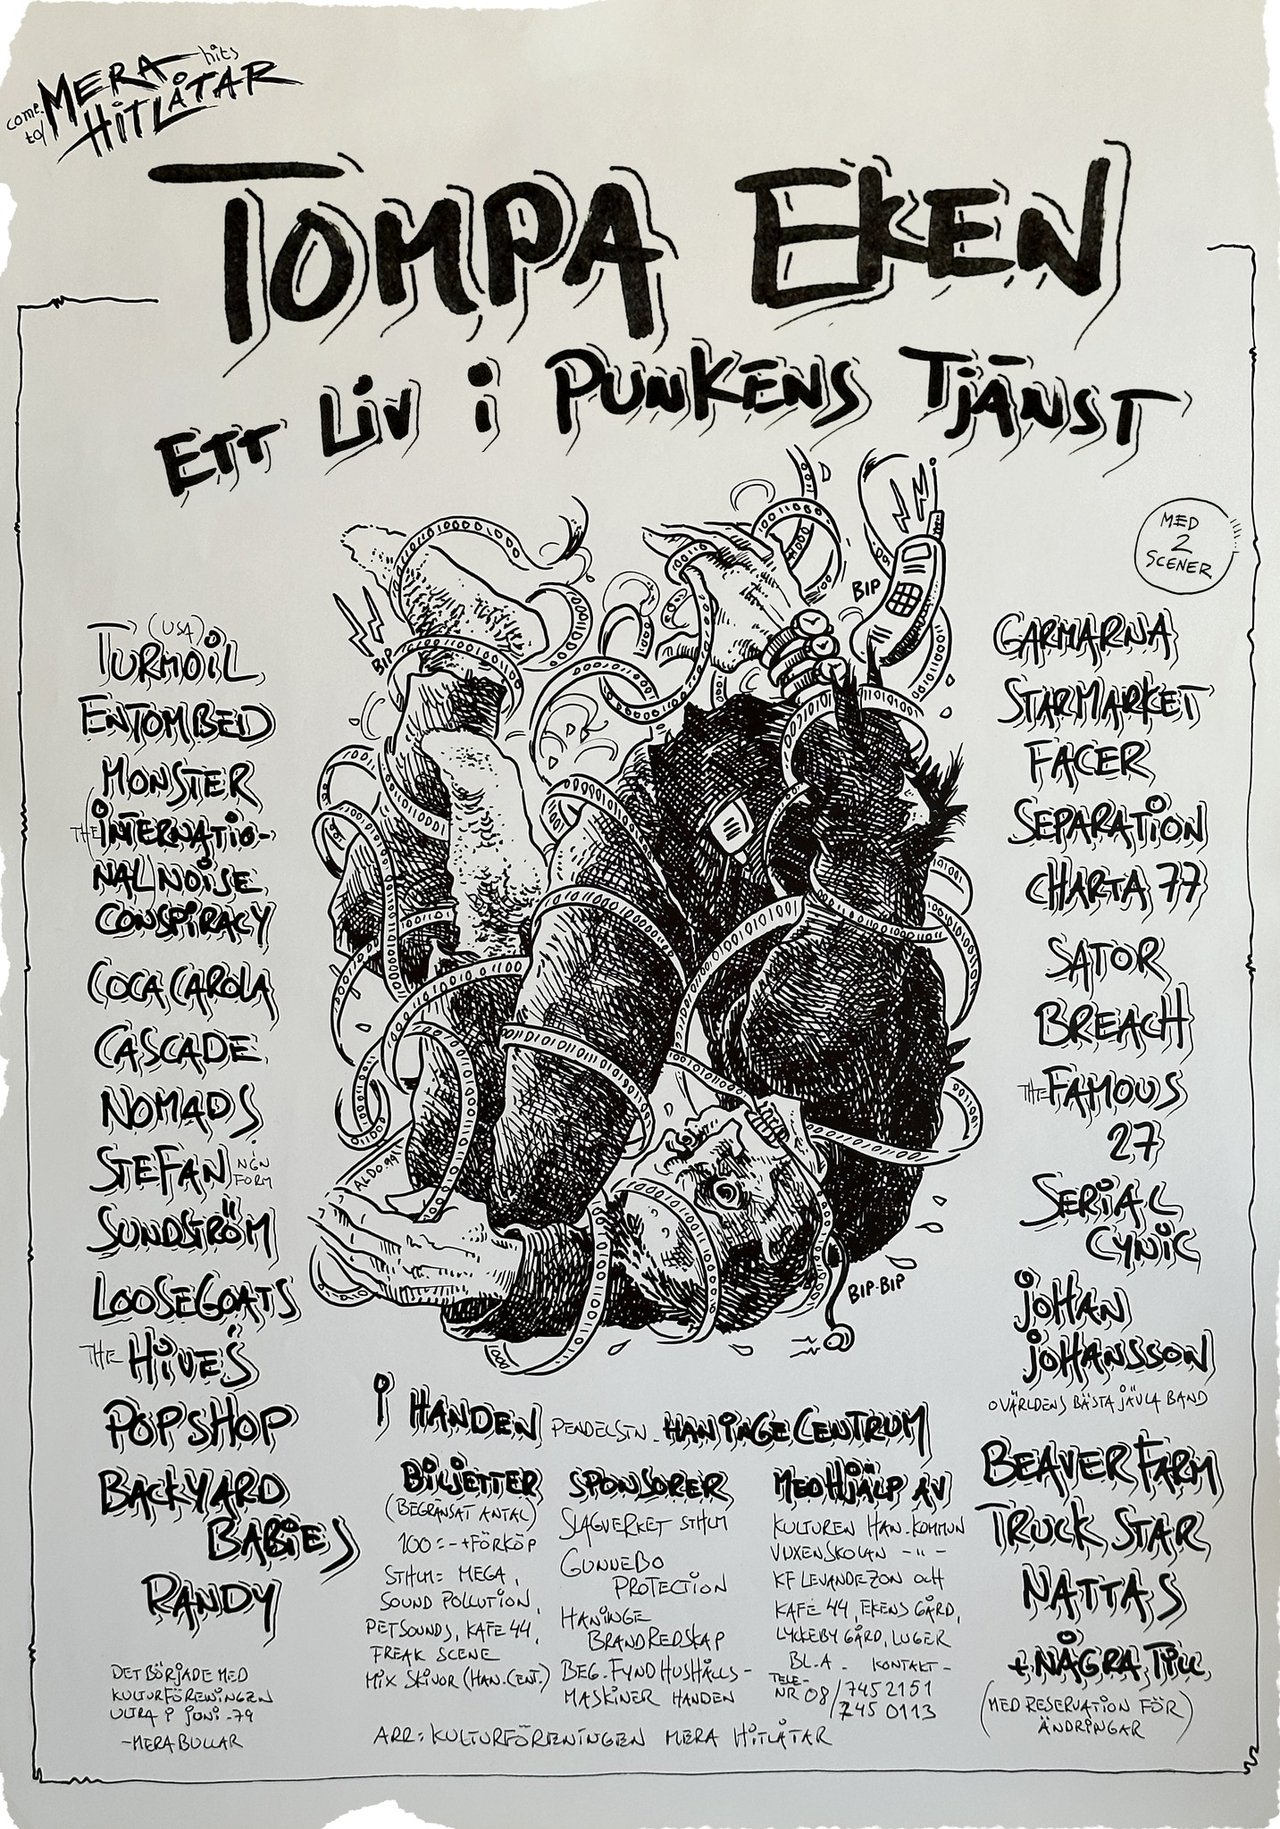 come to/ MERA hits
HITLÅTAR
TOMPA EKEN
ETT LIV I PUNKENS TJÄNST
MED
2
SCENER
BIP
BIP
ALDO.99
BIP-BIP
TURMOIL (USA)
ENTOMBED
MONSTER
THE INTERNATIO-
NAL NOISE
CONSPIRACY
COCA CAROLA
CASCADE
NOMADS
STEFAN I NGN FORM
SUNDSTRÖM
LOOSEGOATS
THE HIVES
POPSHOP
BACKYARD
BABIES
RANDY
DET BÖRJADE MED
KULTURFÖRENINGEN
ULTRA I JUNI -79
-MERA BULLAR
GARMARNA
STARMARKET
FACER
SEPARATION
CHARTA 77
SATOR
BREACH
THE FAMOUS
27
SERIAL
CYNIC
JOHAN
JOHANSSON
O VÄRLDENS BÄSTA JÄVLA BAND
BEAVER FARM
TRUCK STAR
NATTAS
+ NÅGRA TILL
(MED RESERVATION FÖR
ÄNDRINGAR)
I HANDEN PENDELSTN. HANINGE CENTRUM
BILJETTER
(BEGRÄNSAT ANTAL)
100:- + FÖRKÖP
STHLM: MEGA,
SOUND POLLUTION,
PETSOUNDS, KAFE 44,
FREAK SCENE
MIX SKIVOR (HAN. CENT.)
SPONSORER
SLAGVERKET STHLM
GUNNEBO
PROTECTION
HANINGE
BRANDREDSKAP
BEG. FYND HUSHÅLLS-
MASKINER HANDEN
MED HJÄLP AV
KULTUREN HAN. KOMMUN
VUXENSKOLAN -"-
KF LEVANDE ZON OCH
KAFÉ 44, EKENS GÅRD,
LYCKEBY GÅRD, LUGER
BL.A. KONTAKT-
TELE-
NR 08/745 2151
/745 0113
ARR: KULTURFÖRENINGEN MERA HITLÅTAR